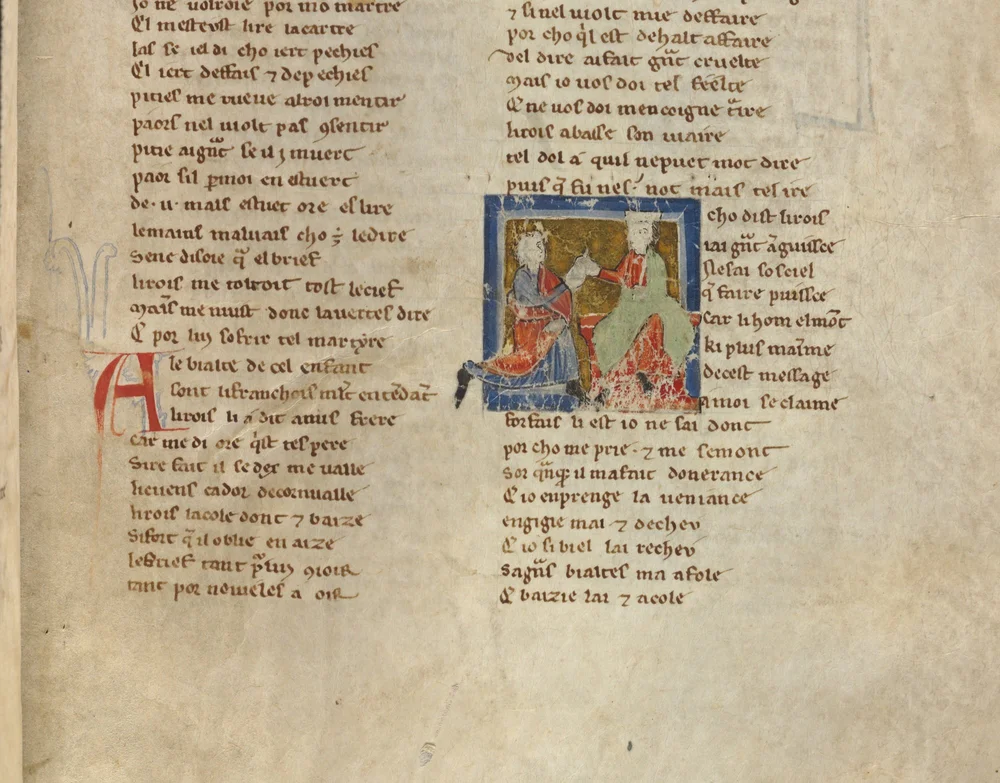 Jo ne volroie por mō martre
Et mestevst lire la cartre
las se iel di cho iert pechies
Et iert deffais ⁊ depechies
pities me rueue al roi mentir
paors nel violt pas ꝯsentir
pitie ai gnt̄ se il i muert
paor sil ꝑ moi en estuert
de · ii · mals estuet ore eslire
le mains malvais cho ē le dire
Se ne disoie q̄ el brief
li rois me tolroit tost le cief
Mais me nuist donc la uertes dire
Et por lui sofrir tel martyre
A le bialte de cel enfant
sont li franchois mlt̄ entēdāt
li rois li a dit amis frere
car me di ore q̓st tes pere
Sire fait il se dex me valle
li cuens cador de cornualle
li rois lacole donc ⁊ baize
Si fort q̄ il oblie en aize
le brief tant p̄ lui ꝯioir
tant por noueles a oir
⁊ si nel violt mie deffaire
por cho q̓l est de halt affaire
Del dire ai fait gnt̄ cruelte
Mais io vos doi tel feelte
Que ne vos doi mencoigne t̄ire
li rois abaisse son viaire
tel dol a quil ne puet mot dire
puis q̄ fu nes not mais tel ire
cho dist li rois
iai gnt̄ āguisce
Ne sai so ciel
q̄ faire puisce
Car li hom el mōt
ki plus maīme
de cest message
a moi se claime
forfais li est io ne sai dont
por cho me prie · ⁊ me semont
Sor q̄nq̄ il ma fait donerance
Q io enprenge la veniance
engigie mai ⁊ dechev
Q io si biel lai rechev
Sa gn̄s bialtes ma afole
Q baizie lai ⁊ acole